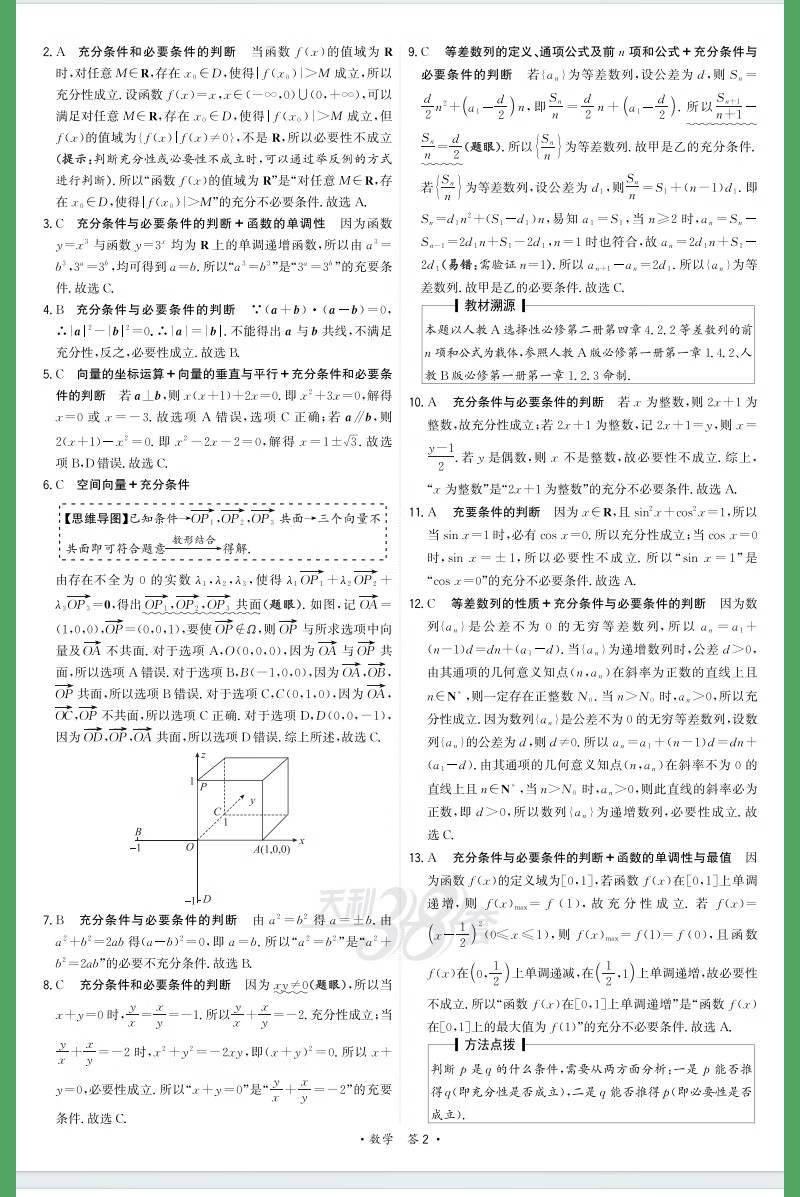 2. A 充分条件和必要条件的判断 当函数 f(x)的值域为 R
时,对任意 M∈R,存在 x₀∈D,使得|f(x₀)|>M 成立,所以
充分性成立. 设函数 f(x)=x,x∈(−∞,0)∪(0,+∞),可以
满足对任意 M∈R,存在 x₀∈D,使得|f(x₀)|>M 成立,但
f(x)的值域为{f(x)|f(x)≠0},不是 R,所以必要性不成立
(提示:判断充分性或必要性不成立时,可以通过举反例的方式
进行判断). 所以“函数 f(x)的值域为 R”是“对任意 M∈R,存
在 x₀∈D,使得|f(x₀)|>M”的充分不必要条件. 故选 A.
3. C 充分条件与必要条件的判断+函数的单调性 因为函数
y=x³ 与函数 y=3ˣ 均为 R 上的单调递增函数,所以由 a³=
b³,3ᵃ=3ᵇ,均可得到 a=b. 所以“a³=b³”是“3ᵃ=3ᵇ”的充要条
件. 故选 C.
4. B 充分条件与必要条件的判断 ∵(a+b)·(a−b)=0,
∴|a|²−|b|²=0.∴|a|=|b|. 不能得出 a 与 b 共线,不满足
充分性,反之,必要性成立. 故选 B.
5. C 向量的坐标运算+向量的垂直与平行+充分条件和必要条
件的判断 若 a⊥b,则 x(x+1)+2x=0. 即 x²+3x=0,解得
x=0 或 x=−3. 故选项 A 错误,选项 C 正确;若 a∥b,则
2(x+1)−x²=0. 即 x²−2x−2=0,解得 x=1±√3. 故选
项 B,D 错误. 故选 C.
6. C 空间向量+充分条件
【思维导图】已知条件→OP₁,OP₂,OP₃ 共面→三个向量不
共面即可符合题意 数形结合→得解.
由存在不全为 0 的实数 λ₁,λ₂,λ₃,使得 λ₁OP₁+λ₂OP₂+
λ₃OP₃=0,得出OP₁,OP₂,OP₃ 共面(题眼). 如图,记 OA=
(1,0,0),OP=(0,0,1),要使 OP∉Ω,则 OP 与所求选项中向
量及OA 不共面. 对于选项 A,O(0,0,0),因为 OA 与OP 共
面,所以选项 A 错误. 对于选项 B,B(−1,0,0),因为 OA,OB,
OP 共面,所以选项 B 错误. 对于选项 C,C(0,1,0),因为 OA,
OC,OP 不共面,所以选项 C 正确. 对于选项 D,D(0,0,−1),
因为 OD,OP,OA 共面,所以选项 D 错误. 综上所述,故选 C.
z
1
P
y
C
1
B
−1
O
A(1,0,0)
x
−1
D
7. B 充分条件与必要条件的判断 由 a²=b² 得 a=±b. 由
a²+b²=2ab 得(a−b)²=0,即 a=b. 所以“a²=b²”是“a²+
b²=2ab”的必要不充分条件. 故选 B.
8. C 充分条件和必要条件的判断 因为 xy≠0(题眼),所以当
x+y=0 时,y/x=x/y=−1. 所以y/x+x/y=−2. 充分性成立;当
y/x+x/y=−2 时,x²+y²=−2xy,即(x+y)²=0. 所以 x+
y=0,必要性成立. 所以“x+y=0”是“y/x+x/y=−2”的充要
条件. 故选 C.
9. C 等差数列的定义、通项公式及前 n 项和公式+充分条件与
必要条件的判断 若{aₙ}为等差数列,设公差为 d,则 Sₙ=
d/2 n²+(a₁−d/2)n,即 Sₙ/n=d/2 n+(a₁−d/2). 所以 Sₙ₊₁/(n+1)−
Sₙ/n=d/2(题眼). 所以{Sₙ/n}为等差数列. 故甲是乙的充分条件.
若{Sₙ/n}为等差数列,设公差为 d₁,则Sₙ/n=S₁+(n−1)d₁. 即
Sₙ=d₁n²+(S₁−d₁)n,易知 a₁=S₁,当 n≥2 时,aₙ=Sₙ−
Sₙ₋₁=2d₁n+S₁−2d₁,n=1 时也符合,故 aₙ=2d₁n+S₁−
2d₁(易错:需验证 n=1). 所以 aₙ₊₁−aₙ=2d₁. 所以{aₙ}为等
差数列. 故甲是乙的必要条件. 故选 C.
教材溯源
本题以人教 A 选择性必修第二册第四章 4.2.2 等差数列的前
n 项和公式为载体,参照人教 A 版必修第一册第一章 1.4.2、人
教 B 版必修第一册第一章 1.2.3 命制.
10. A 充分条件与必要条件的判断 若 x 为整数,则 2x+1 为
整数,故充分性成立;若 2x+1 为整数,记 2x+1=y,则 x=
(y−1)/2. 若 y 是偶数,则 x 不是整数,故必要性不成立. 综上,
“x 为整数”是“2x+1 为整数”的充分不必要条件. 故选 A.
11. A 充要条件的判断 因为 x∈R,且 sin²x+cos²x=1,所以
当 sin x=1 时,必有 cos x=0. 所以充分性成立;当 cos x=0
时,sin x=±1,所以必要性不成立. 所以“sin x=1”是
“cos x=0”的充分不必要条件. 故选 A.
12. C 等差数列的性质+充分条件与必要条件的判断 因为数
列{aₙ}是公差不为 0 的无穷等差数列,所以 aₙ=a₁+
(n−1)d=dn+(a₁−d). 当{aₙ}为递增数列时,公差 d>0,
由其通项的几何意义知点(n,aₙ)在斜率为正数的直线上且
n∈N*,则一定存在正整数 N₀. 当 n>N₀ 时,aₙ>0,所以充
分性成立. 因为数列{aₙ}是公差不为 0 的无穷等差数列,设数
列{aₙ}的公差为 d,则 d≠0. 所以 aₙ=a₁+(n−1)d=dn+
(a₁−d). 由其通项的几何意义知点(n,aₙ)在斜率不为 0 的
直线上且 n∈N*,当 n>N₀ 时,aₙ>0,则此直线的斜率必为
正数,即 d>0,所以数列{aₙ}为递增数列,必要性成立. 故
选 C.
13. A 充分条件与必要条件的判断+函数的单调性与最值 因
为函数 f(x)的定义域为[0,1],若函数 f(x)在[0,1]上单调
递增,则 f(x)max=f(1),故充分性成立. 若 f(x)=
(x−1/2)²(0≤x≤1),则 f(x)max=f(1)=f(0),且函数
f(x)在(0,1/2)上单调递减,在(1/2,1)上单调递增,故必要性
不成立. 所以“函数 f(x)在[0,1]上单调递增”是“函数 f(x)
在[0,1]上的最大值为 f(1)”的充分不必要条件. 故选 A.
方法点拨
判断 p 是 q 的什么条件,需要从两方面分析:一是 p 能否推
得 q(即充分性是否成立),二是 q 能否推得 p(即必要性是否
成立).
天利38套
·数学 答 2·